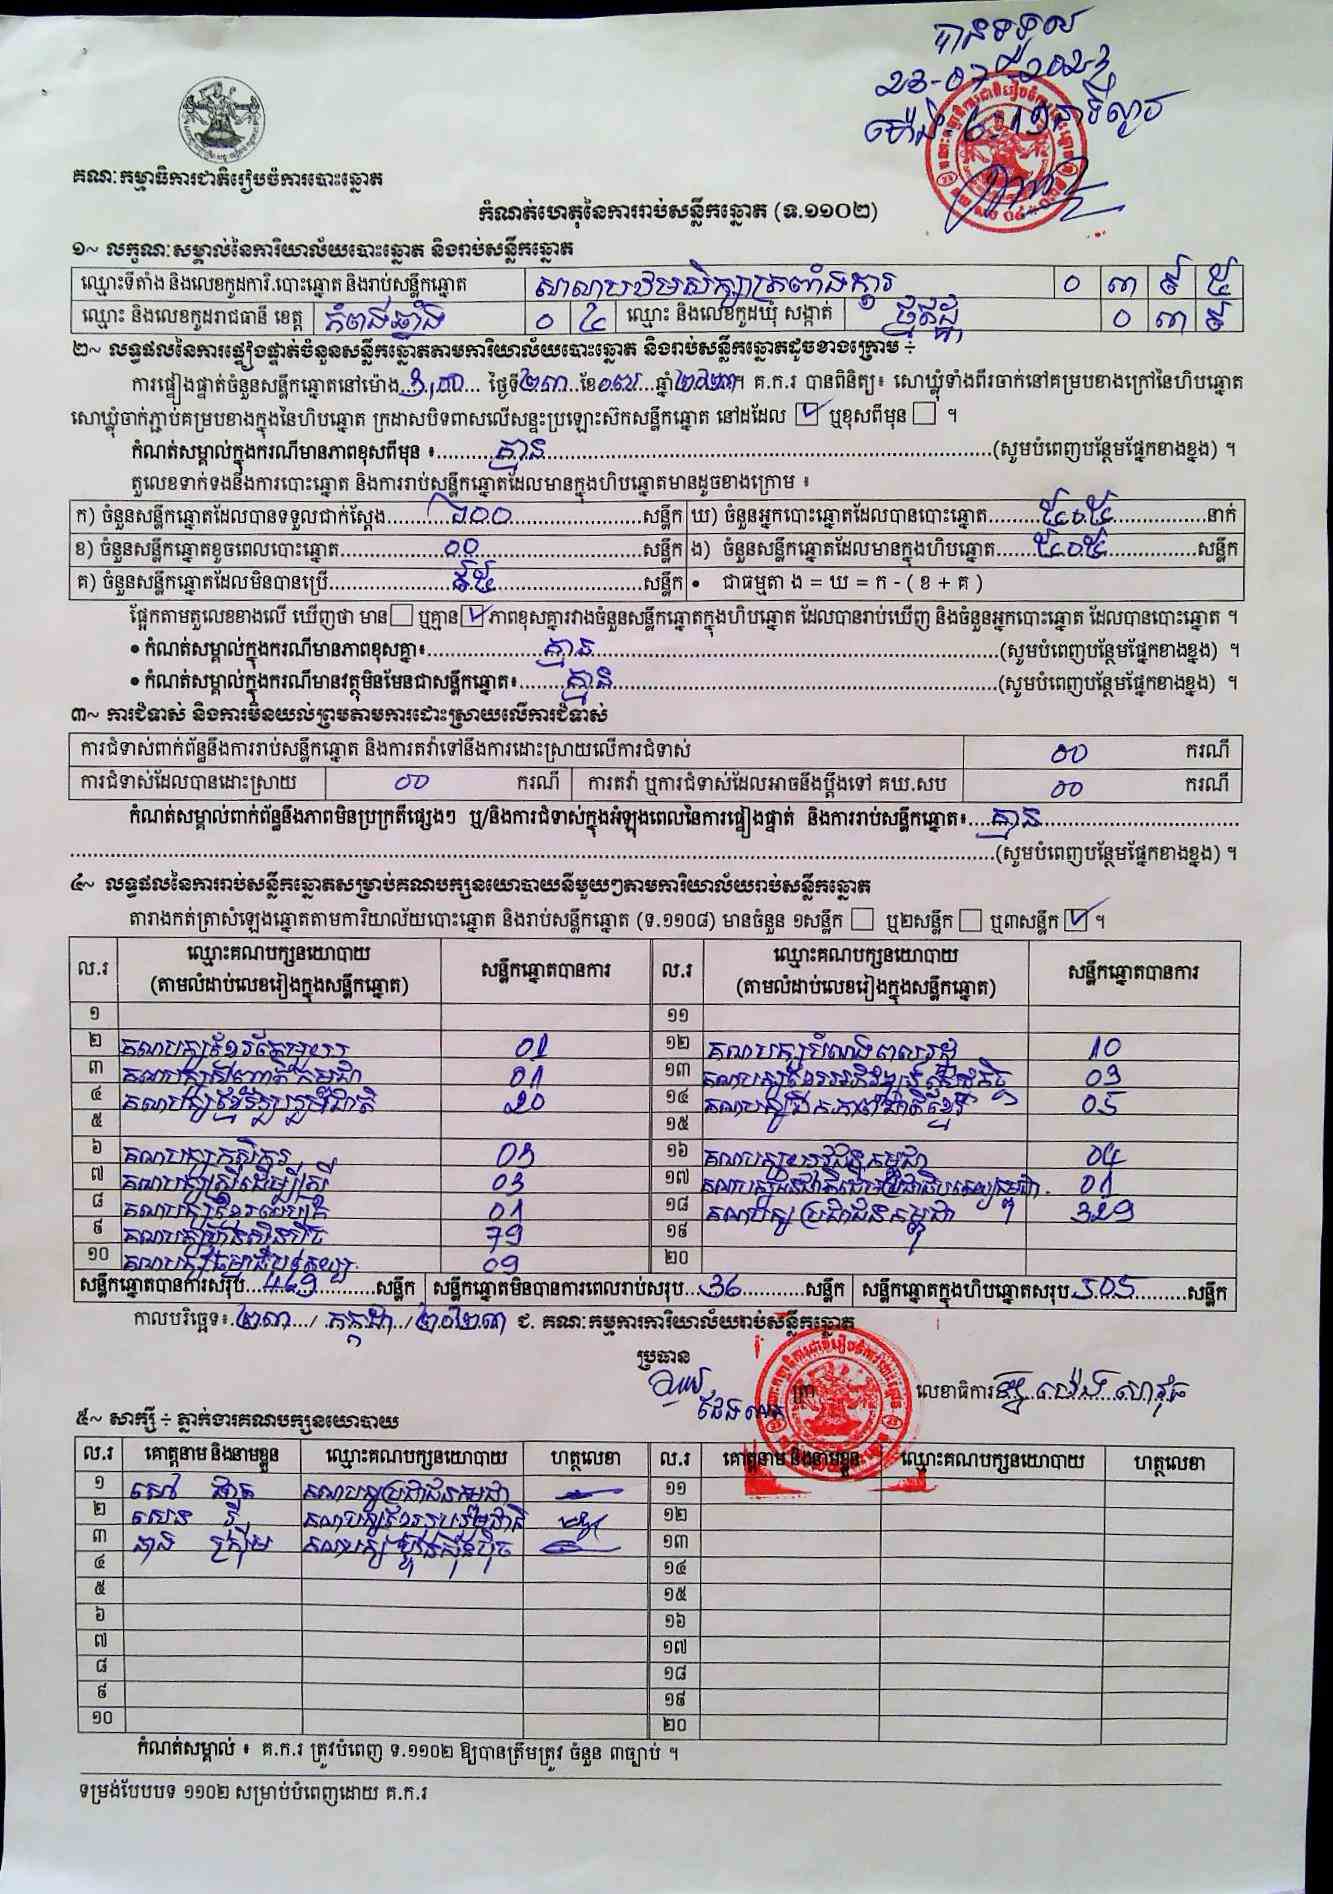 បានទទួល
គណៈកម្មាធិការជាតិរៀបចំការបោះឆ្នោត
កំណត់ហេតុនៃការរាប់សន្លឹកឆ្នោត (ទ.១១០២)
១~ លក្ខណៈសម្គាល់នៃការិយាល័យបោះឆ្នោត និងរាប់សន្លឹកឆ្នោត
ឈ្មោះទីតាំង និងលេខកូដការិ.បោះឆ្នោត និងរាប់សន្លឹកឆ្នោត សាលាបឋមសិក្សាត្រពាំង ០ ៣ ៩ ៥
ឈ្មោះ និងលេខកូដរាជធានី ខេត្ត កំពង់ឆ្នាំង ០ ៤ ឈ្មោះ និងលេខកូដឃុំ សង្កាត់ ០ ៣ ៩
២~ លទ្ធផលនៃការផ្ទៀងផ្ទាត់ចំនួនសន្លឹកឆ្នោតតាមការិយាល័យបោះឆ្នោត និងរាប់សន្លឹកឆ្នោតដូចខាងក្រោម ÷
ការផ្ទៀងផ្ទាត់ចំនួនសន្លឹកឆ្នោតនៅម៉ោង ៣,០០ ថ្ងៃទី ២៣ ខែ ០៧ ឆ្នាំ ២០២៣។ គ.ក.រ បានពិនិត្យ៖ សោឃ្លុំទាំងពីរចាក់នៅគម្របខាងក្រៅនៃហិបឆ្នោត
សោឃ្លុំចាក់ភ្ជាប់គម្របខាងក្នុងនៃហិបឆ្នោត ក្រដាសបិទពាសលើសន្ទះប្រឡោះស៊កសន្លឹកឆ្នោត នៅដដែល ☑ ឬខុសពីមុន ☐ ។
កំណត់សម្គាល់ក្នុងករណីមានភាពខុសពីមុន ៖ គ្មាន (សូមបំពេញបន្ថែមផ្នែកខាងខ្នង) ។
តួលេខទាក់ទងនឹងការបោះឆ្នោត និងការរាប់សន្លឹកឆ្នោតដែលមានក្នុងហិបឆ្នោតមានដូចខាងក្រោម ៖
ក) ចំនួនសន្លឹកឆ្នោតដែលបានទទួលជាក់ស្តែង ៦០០ សន្លឹក ឃ) ចំនួនអ្នកបោះឆ្នោតដែលបានបោះឆ្នោត ៥០៥ នាក់
ខ) ចំនួនសន្លឹកឆ្នោតខូចពេលបោះឆ្នោត ០០ សន្លឹក ង) ចំនួនសន្លឹកឆ្នោតដែលមានក្នុងហិបឆ្នោត ៥០៥ សន្លឹក
គ) ចំនួនសន្លឹកឆ្នោតដែលមិនបានប្រើ ៩៥ សន្លឹក • ជាធម្មតា ង = ឃ = ក - ( ខ + គ )
ផ្អែកតាមតួលេខខាងលើ ឃើញថា មាន ☐ ឬគ្មាន ☑ ភាពខុសគ្នារវាងចំនួនសន្លឹកឆ្នោតក្នុងហិបឆ្នោត ដែលបានរាប់ឃើញ និងចំនួនអ្នកបោះឆ្នោត ដែលបានបោះឆ្នោត ។
• កំណត់សម្គាល់ក្នុងករណីមានភាពខុសគ្នា៖ គ្មាន (សូមបំពេញបន្ថែមផ្នែកខាងខ្នង) ។
• កំណត់សម្គាល់ក្នុងករណីមានវត្ថុមិនមែនជាសន្លឹកឆ្នោត៖ គ្មាន (សូមបំពេញបន្ថែមផ្នែកខាងខ្នង) ។
៣~ ការជំទាស់ និងការមិនយល់ព្រមតាមការដោះស្រាយលើការជំទាស់
ការជំទាស់ពាក់ព័ន្ធនឹងការរាប់សន្លឹកឆ្នោត និងការតវ៉ាទៅនឹងការដោះស្រាយលើការជំទាស់ ០០ ករណី
ការជំទាស់ដែលបានដោះស្រាយ ០០ ករណី ការតវ៉ា ឬការជំទាស់ដែលអាចនឹងប្តឹងទៅ គឃ.សប ០០ ករណី
កំណត់សម្គាល់ពាក់ព័ន្ធនឹងភាពមិនប្រក្រតីផ្សេងៗ ឬ/និងការជំទាស់ក្នុងអំឡុងពេលនៃការផ្ទៀងផ្ទាត់ និងការរាប់សន្លឹកឆ្នោត៖ គ្មាន
(សូមបំពេញបន្ថែមផ្នែកខាងខ្នង) ។
៤~ លទ្ធផលនៃការរាប់សន្លឹកឆ្នោតសម្រាប់គណបក្សនយោបាយនីមួយៗតាមការិយាល័យរាប់សន្លឹកឆ្នោត
តារាងកត់ត្រាសំឡេងឆ្នោតតាមការិយាល័យបោះឆ្នោត និងរាប់សន្លឹកឆ្នោត (ទ.១១០៨) មានចំនួន ១សន្លឹក ☐ ឬ២សន្លឹក ☐ ឬ៣សន្លឹក ☑ ។
ល.រ ឈ្មោះគណបក្សនយោបាយ (តាមលំដាប់លេខរៀងក្នុងសន្លឹកឆ្នោត) សន្លឹកឆ្នោតបានការ ល.រ ឈ្មោះគណបក្សនយោបាយ (តាមលំដាប់លេខរៀងក្នុងសន្លឹកឆ្នោត) សន្លឹកឆ្នោតបានការ
១ ១១
២ គណបក្សខ្មែរតែមួយ 01 ១២ គណបក្សបំណងពលរដ្ឋ 10
៣ 01 ១៣ គណបក្សខ្មែរអភិវឌ្ឍន៍សេដ្ឋកិច្ច 03
៤ គណបក្សខ្មែររួបរួមជាតិ 20 ១៤ គណបក្សឯកភាពជាតិខ្មែរ 05
៥ ១៥
៦ គណបក្សកសិករ 03 ១៦ គណបក្សយុវជនកម្ពុជា 04
៧ គណបក្សស្រីដើម្បីស្រី 03 ១៧ 01
៨ 01 ១៨ គណបក្សប្រជាជនកម្ពុជា 329
៩ គណបក្សហ៊្វុនស៊ិនប៉ិច 79 ១៩
១០ គណបក្សធម្មាធិបតេយ្យ 09 ២០
សន្លឹកឆ្នោតបានការសរុប 469 សន្លឹក សន្លឹកឆ្នោតមិនបានការពេលរាប់សរុប 36 សន្លឹក សន្លឹកឆ្នោតក្នុងហិបឆ្នោតសរុប 505 សន្លឹក
កាលបរិច្ឆេទ៖ ២៣ / កក្កដា / ២០២៣ ជ. គណៈកម្មការការិយាល័យរាប់សន្លឹកឆ្នោត
ប្រធាន
លេខាធិការ
៥~ សាក្សី ÷ ភ្នាក់ងារគណបក្សនយោបាយ
ល.រ គោត្តនាម និងនាមខ្លួន ឈ្មោះគណបក្សនយោបាយ ហត្ថលេខា ល.រ គោត្តនាម និងនាមខ្លួន ឈ្មោះគណបក្សនយោបាយ ហត្ថលេខា
១ គណបក្សប្រជាជនកម្ពុជា ១១
២ សេន រី គណបក្សខ្មែររួបរួមជាតិ ១២
៣ គណបក្សហ៊្វុនស៊ិនប៉ិច ១៣
៤ ១៤
៥ ១៥
៦ ១៦
៧ ១៧
៨ ១៨
៩ ១៩
១០ ២០
កំណត់សម្គាល់ ៖ គ.ក.រ ត្រូវបំពេញ ទ.១១០២ ឱ្យបានត្រឹមត្រូវ ចំនួន ៣ច្បាប់ ។
ទម្រង់បែបបទ ១១០២ សម្រាប់បំពេញដោយ គ.ក.រ